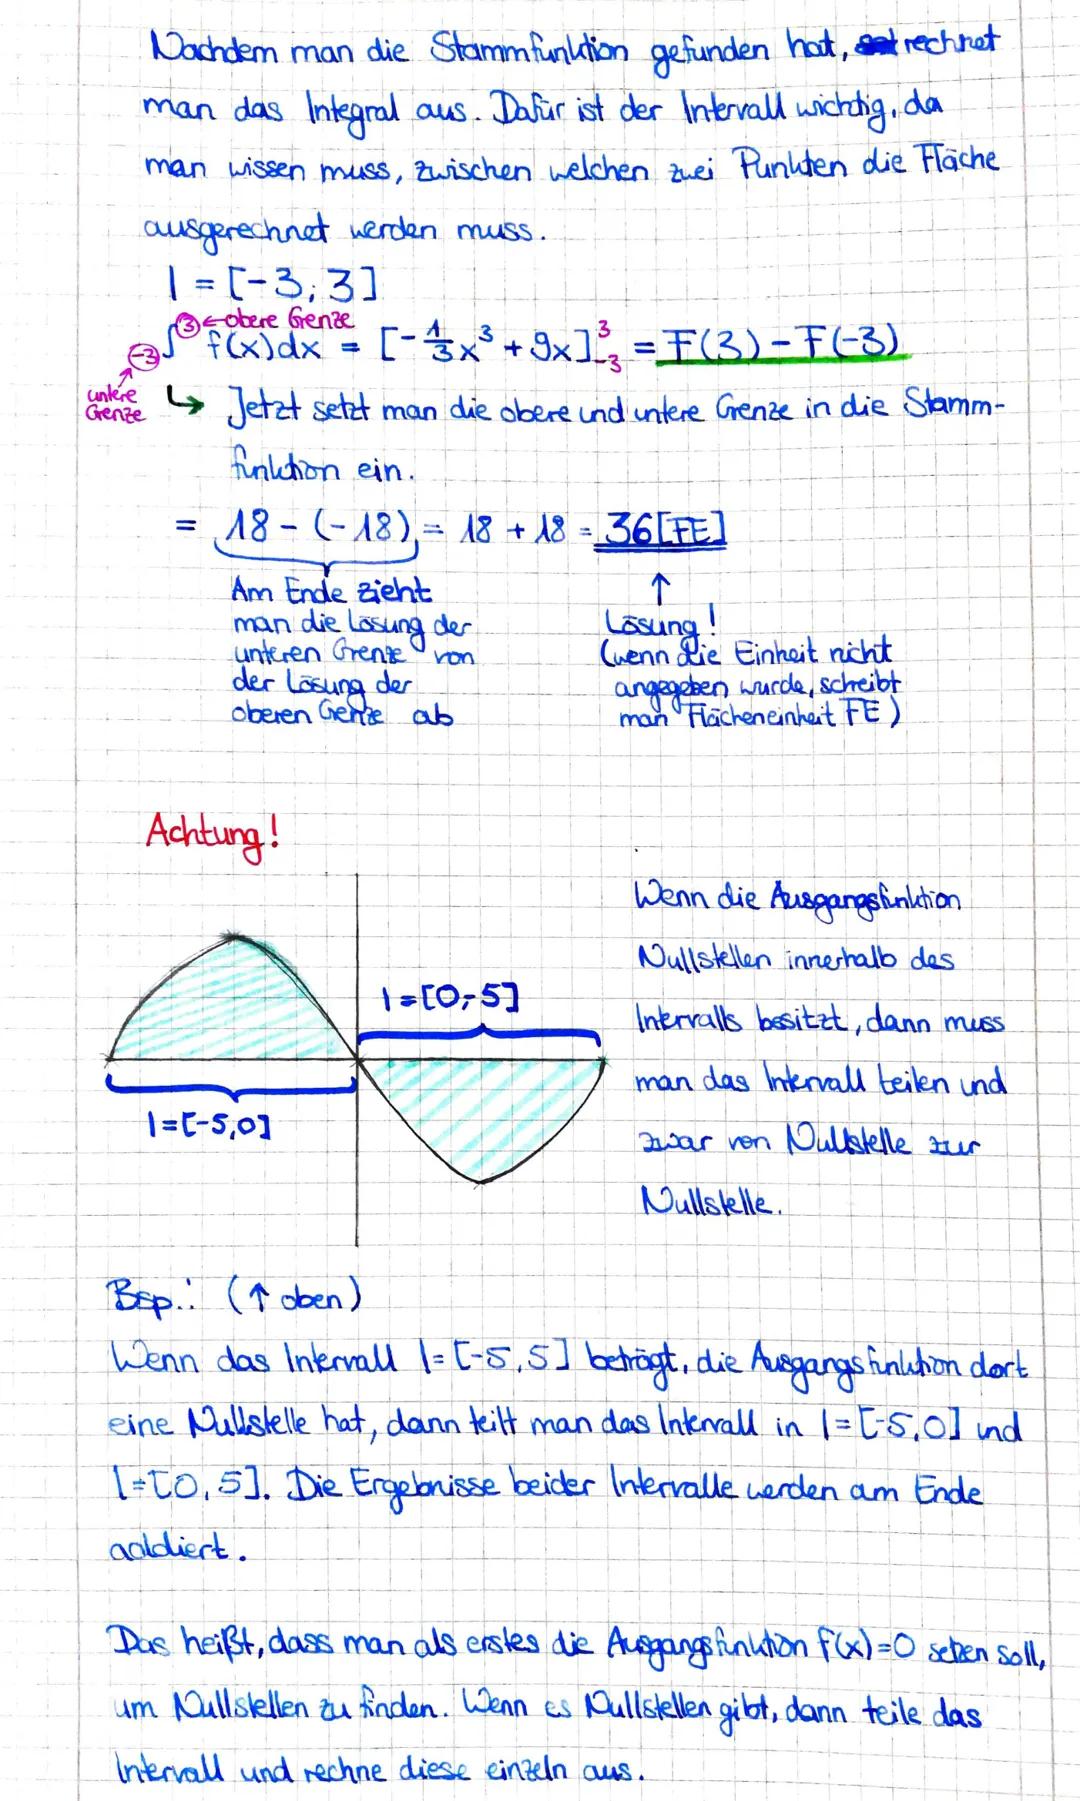 Nachdem man die Stammfunktion gefunden hat, rechnet
man das Integral aus. Dafür ist der Intervall wichtig, da
man wissen muss, zwischen welchen zwei Punkten die Fläche
ausgerechnet werden muss.
I = [-3; 3]
3 ← obere Grenze
-3 ∫ f(x)dx = [-1/3 x³ + 9x]³₋₃ = F(3) - F(-3)
untere
Grenze
↳ Jetzt setzt man die obere und untere Grenze in die Stamm-
funktion ein.
= 18 - (-18) = 18 + 18 = 36 [FE]
Am Ende zieht
man die Lösung der
unteren Grenze von
der Lösung der
oberen Genze ab
↑
Lösung!
(wenn die Einheit nicht
angegeben wurde, schreibt
man Flächeneinheit FE)
Achtung!
I=[0,-5]
I=[-5,0]
Wenn die Ausgangsfunktion
Nullstellen innerhalb des
Intervalls besitzt, dann muss
man das Intervall teilen und
zwar von Nullstelle zur
Nullstelle.
Bsp.: (↑ oben)
Wenn das Intervall I=[-5,5] beträgt, die Ausgangsfunktion dort
eine Nullstelle hat, dann teilt man das Intervall in I=[-5,0] und
I=[0,5]. Die Ergebnisse beider Intervalle werden am Ende
addiert.
Das heißt, dass man als erstes die Ausgangsfunktion f(x)=0 setzen soll,
um Nullstellen zu finden. Wenn es Nullstellen gibt, dann teile das
Intervall und rechne diese einzeln aus.